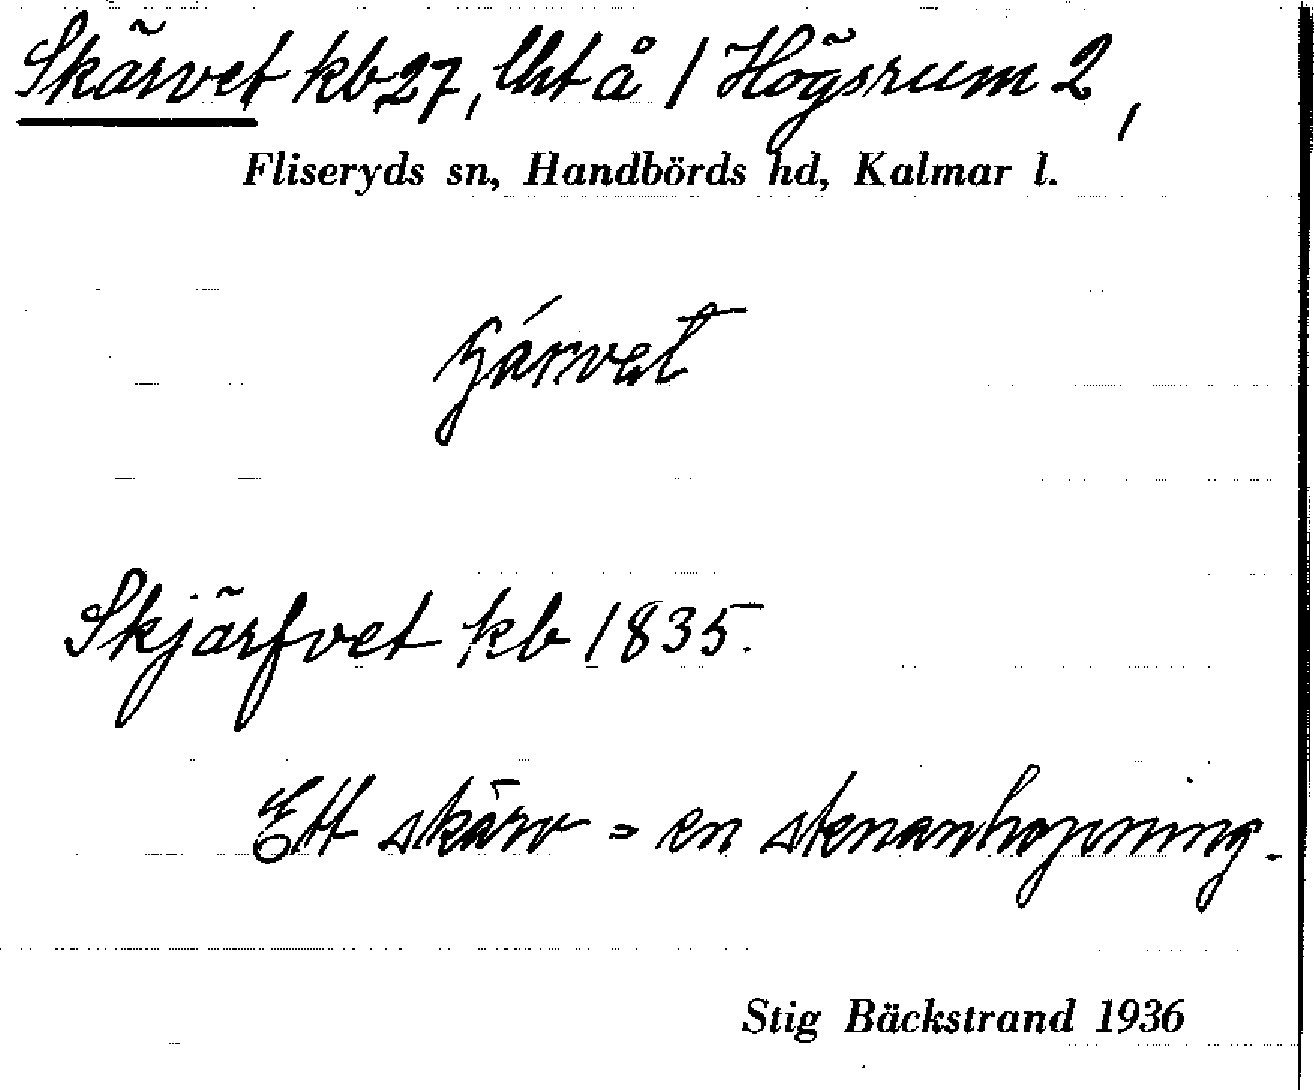 Skärvet kb 27, lht å 1 Högsrum 2,
Fliseryds sn, Handbörds hd, Kalmar l.
Skjärfvet kb 1835.
Ett skärv = en stenanhopning.
Stig Bäckstrand 1936